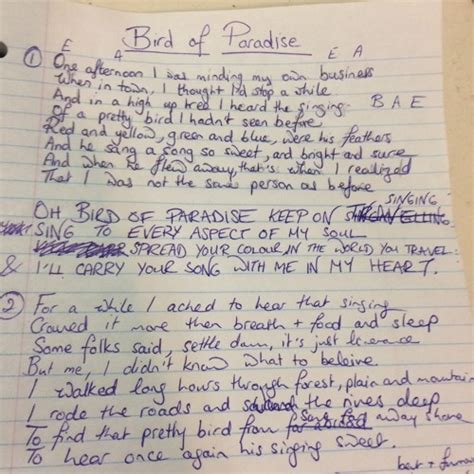 Bird of Paradise
E A E A
① One afternoon I was minding my own business
When in town, I thought I'd stop a while
And in a high up tree I heard the singing B A E
Of a pretty bird I hadn't seen before
Red and yellow, green and blue, were his feathers
And he sang a song so sweet, and bright and sure
And when he flew away, that's when I realized
That I was not the same person as before
SINGING
OH BIRD OF PARADISE KEEP ON
SING TO EVERY ASPECT OF MY SOUL
SPREAD YOUR COLOUR, IN THE WORLD YOU TRAVEL
& I'LL CARRY YOUR SONG WITH ME IN MY HEART.
② For a while I ached to hear that singing
Craved it more then breath + food and sleep
Some folks said, settle down, it's just
But me, I didn't know what to beleive
I walked long hours through forest, plain and mountain
I rode the roads and the rives deep
To find that pretty bird from away shore
To hear once again his singing sweet.